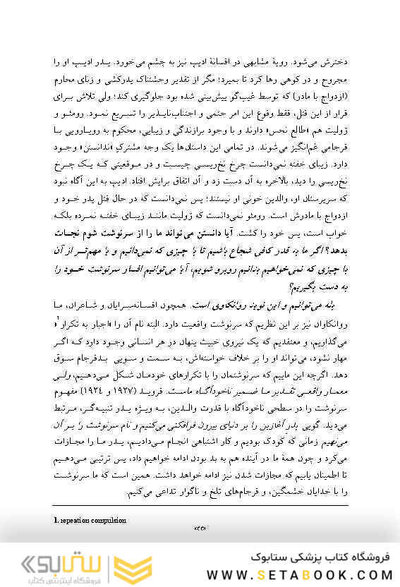 دخترش می‌شود. رویهٔ مشابهی در افسانهٔ ادیپ نیز به چشم می‌خورد. پدر ادیپ او را
مجروح و در کوهی رها کرد تا بمیرد؛ مگر از تقدیر وحشتناک پدرکشی و زنای محارم
(ازدواج با مادر) که توسط غیب‌گو پیش‌بینی شده بود جلوگیری کند؛ ولی تلاش برای
فرار از این قتل، فقط وقوع این امر حتمی و اجتناب‌ناپذیر را تسریع نمود. رومئو و
ژولیت هم «طالع نحس» دارند و با وجود برازندگی و زیبایی، محکوم به رویارویی با
فرجامی غم‌انگیز می‌شوند. در تمامی این داستان‌ها یک وجه مشترکِ «ندانستن» وجود
دارد. زیبای خفته نمی‌دانست چرخ نخ‌ریسی چیست و در موقعیتی که یک چرخ
نخ‌ریسی را دید، بالاخره به آن دست زد و آن اتفاق برایش افتاد. ادیپ به این آگاه نبود
که سرپرستان او، والدین خونی او نیستند؛ پس نمی‌دانست که در حال قتل پدر خود و
ازدواج با مادرش است. رومئو نمی‌دانست که ژولیت مانند زیبای خفته نمرده بلکه
خواب است، پس خود را کشت. آیا دانستن می‌تواند ما را از سرنوشت شوم نجات
بدهد؟ اگر ما به قدر کافی شجاع باشیم تا با چیزی که نمی‌دانیم و یا مهم‌تر از آن
با چیزی که نمی‌خواهیم بدانیم روبرو شویم، آیا می‌توانیم افسار سرنوشت خود را
به دست بگیریم؟
بله می‌توانیم و این نوید روانکاوی است. همچون افسانه‌سرایان و شاعران، ما
روانکاوان نیز بر این نظریم که سرنوشت واقعیت دارد. البته نام آن را «اجبار به تکرار»1
می‌گذاریم، و معتقدیم که یک نیروی خبیث پنهان در هر انسانی وجود دارد که اگر
مهار نشود، می‌تواند او را بر خلاف خواسته‌اش، به سمت و سویی بدفرجام سوق
دهد. اگرچه این ماییم که سرنوشتمان را با تکرارهای خودمان شکل می‌دهیم، ولی
معمار واقعی تقدیر ما ضمیر ناخودآگاه ماست. فروید (۱۹۲۷ و ۱۹۲۴) مفهوم
سرنوشت را در سطحی ناخودآگاه با قدرت والدین، به ویژه پدر تنبیه‌گر، مرتبط
می‌دید. گویی پدر آغازین را بر دنیای بیرون فرافکنی می‌کنیم و نام سرنوشت را بر آن
می‌نهیم. زمانی که کودک بودیم و کار اشتباهی انجام می‌دادیم، پدر ما را مجازات
می‌کرد و چون همهٔ ما در آینده هم به بد بودن ادامه خواهیم داد، پس ترتیبی می‌دهیم
تا اطمینان یابیم که مجازات شدن نیز ادامه خواهد داشت. همین است که ما سرنوشت
را با خدایان خشمگین، و فرجام‌های تلخ و ناگوار تداعی می‌کنیم.
1. repeation compulsion
فروشگاه کتاب پزشکی ستابوک
WWW.SETABOOK.COM
ستابوک
فروشگاه اینترنتی کتاب